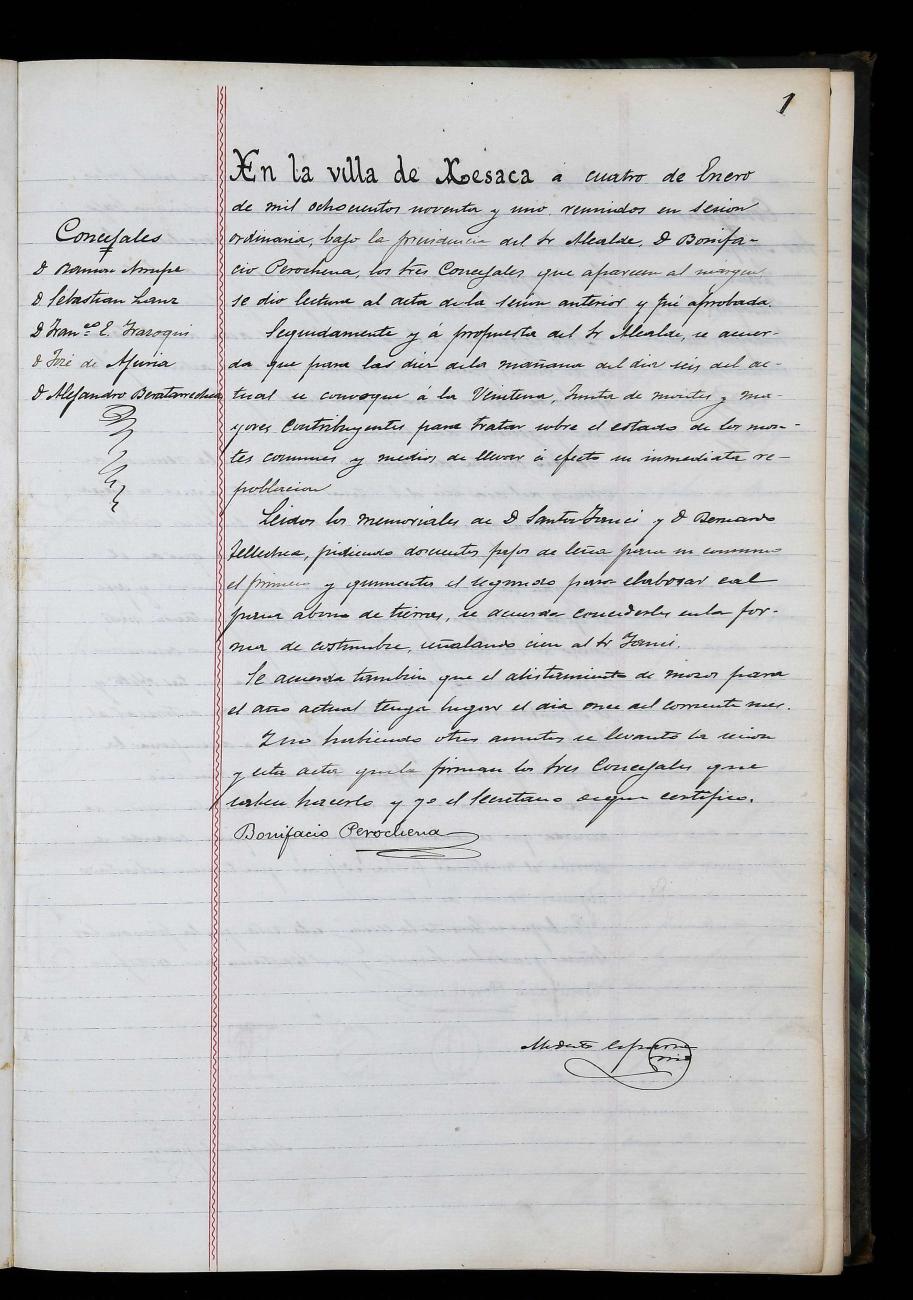 1
En la villa de Lesaca á cuatro de Enero
de mil ochocientos noventa y uno reunidos en sesion
ordinaria, bajo la presidencia del Sr Alcalde, D Bonifa-
cio Perochena, los tres Concejales que aparecen al margen,
se dio lectura al acta de la sesion anterior y fué aprobada.
Seguidamente y á propuesta del Sr Alcalde, se acuer-
da que para las diez de la mañana del dia seis del ac-
tual se convoque á la Veintena, Junta de montes y ma-
yores contribuyentes para tratar sobre el estado de los mon-
tes comunes y medios de llevar á efecto su inmediata re-
poblacion
Leidos los memoriales de D Santos y D Bernardo
Tellechea, pidiendo doscientos pesos de leña para su consumo
el primero y quinientos el segundo para elaborar cal
para abono de tierras, se acuerda concederles en la for-
ma de costumbre, señalando cien al Sr
Se acuerda tambien que el alistamiento de mozos para
el año actual tenga lugar el dia once del corriente mes.
Y no habiendo otros asuntos se levanto la sesion
y esta acta que la firman los tres Concejales que
saben hacerlo y yo el Secretario de que certifico.
Bonifacio Perochena
Modesto
Concejales
D Ramon Arrupe
D Sebastian Lanz
D Fran.co E.
D José de
D Alejandro Beratarrechea